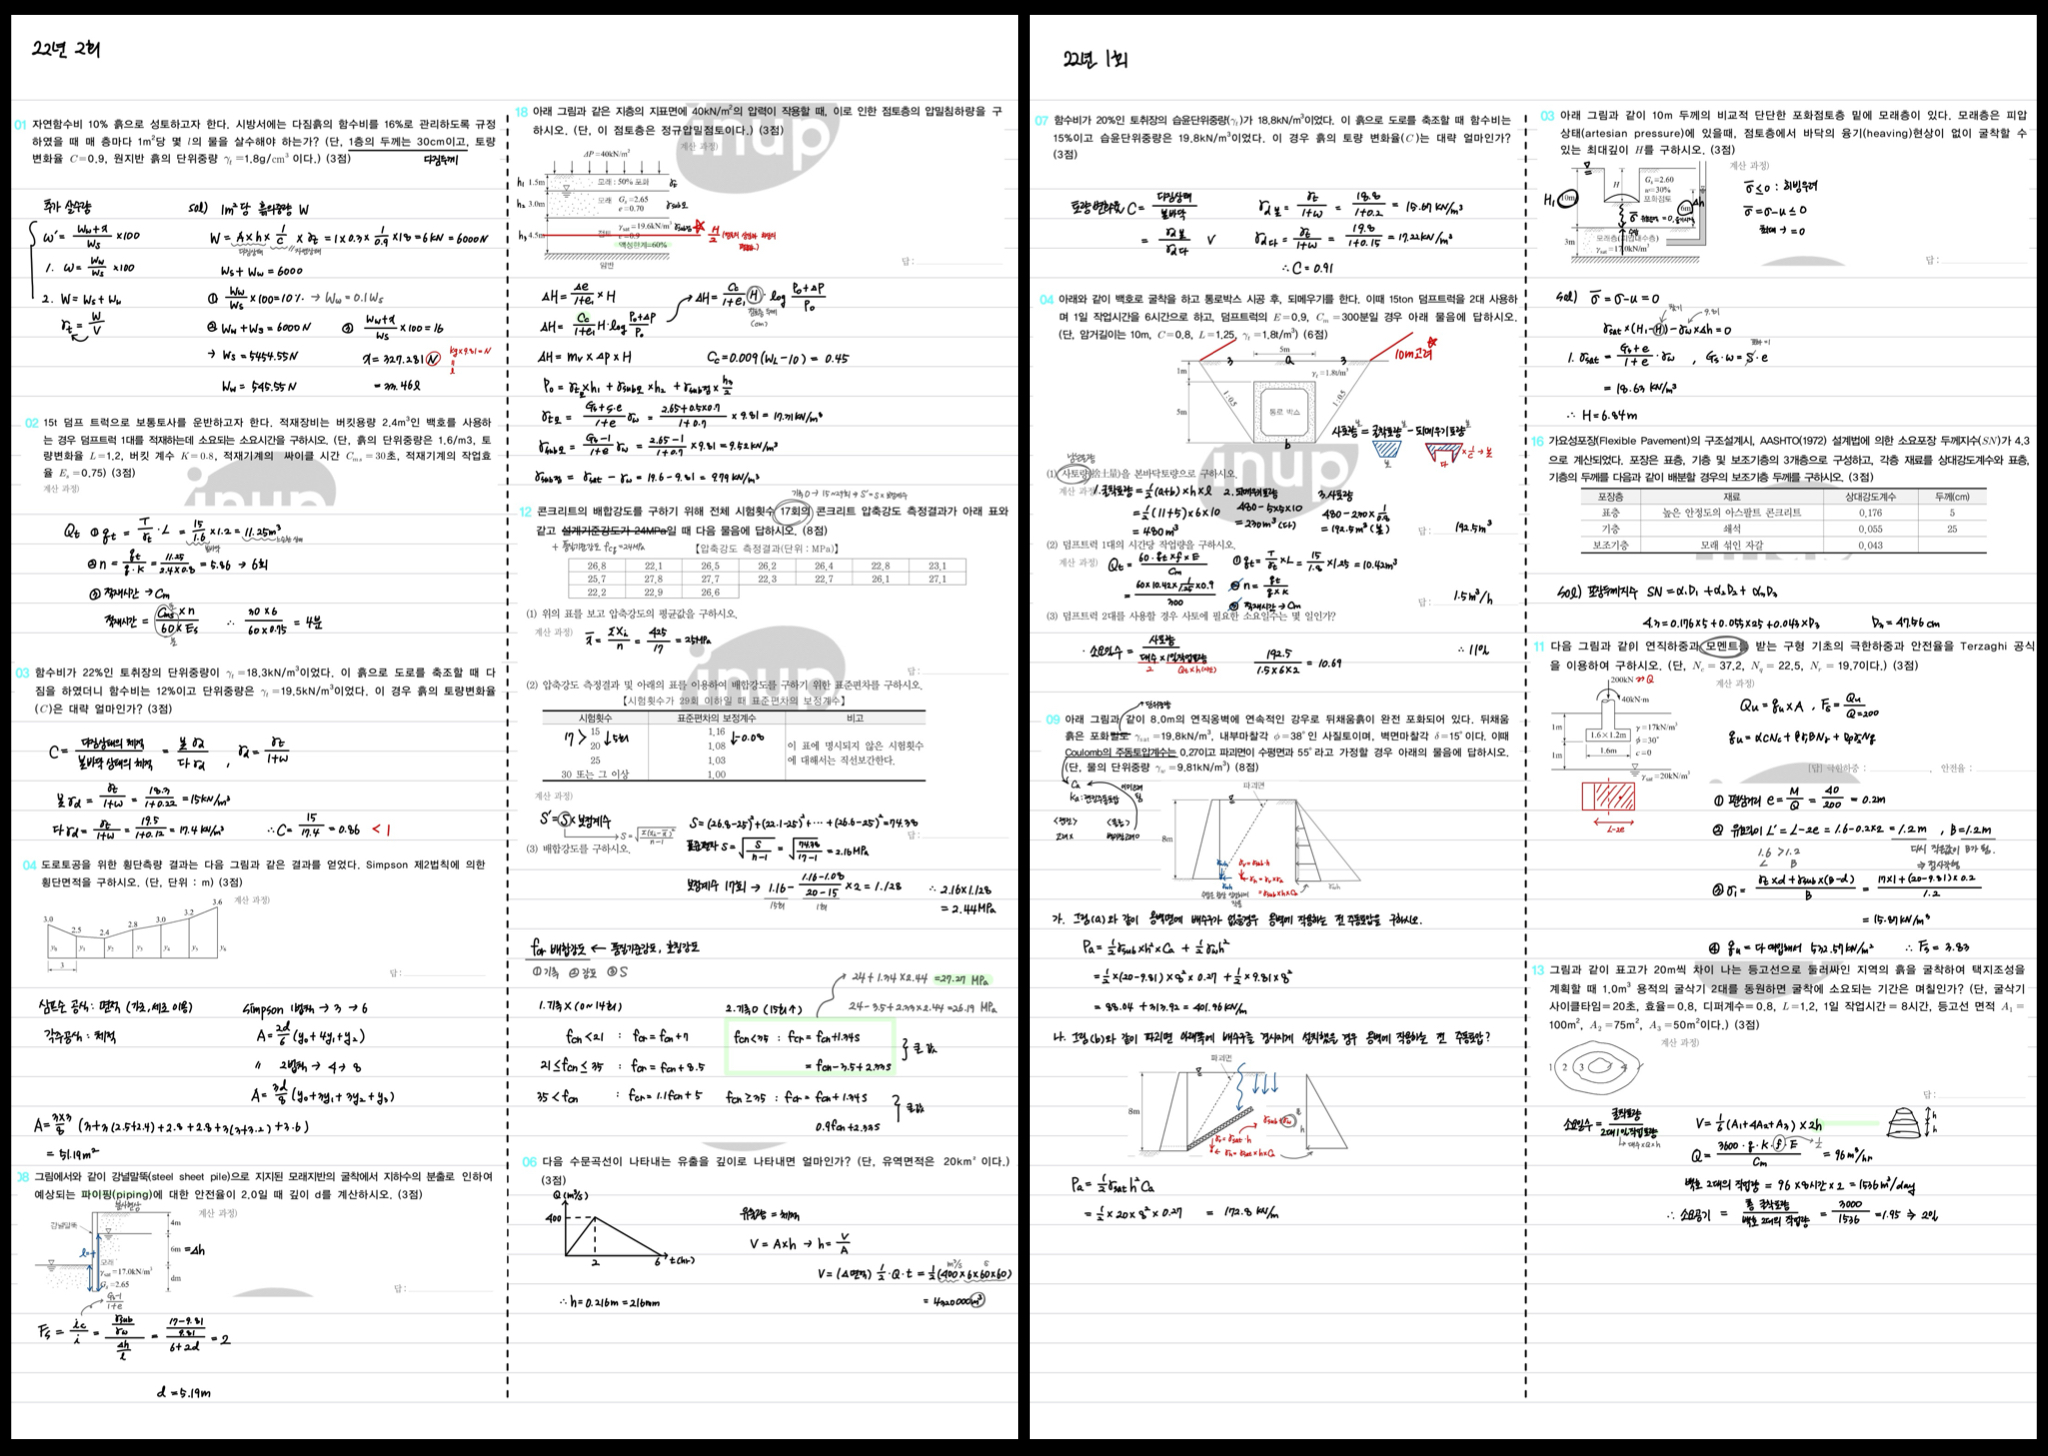 22년 2회
01 자연함수비 10% 흙으로 성토하고자 한다. 시방서에는 다짐흙의 함수비를 16%로 관리하도록 규정
하였을 때 매 층마다 1m²당 몇 l의 물을 살수해야 하는가? (단, 1층의 두께는 30cm이고, 토량
변화율 C=0.9, 원지반 흙의 단위중량 γt=1.8g/cm³ 이다.) (3점)
다짐두께
추가 살수량
ω' = (Ww+x)/Ws ×100
1. ω = Ww/Ws ×100
2. W = Ws + Ww
γt = W/V
sol) 1m²당 흙의중량 W
W = A×h×1/C×γt = 1×0.3×1/0.9×18 = 6kN = 6000N
다짐상태
자연상태
Ws + Ww = 6000
① Ww/Ws ×100 = 10% → Ww = 0.1Ws
② Ww + Ws = 6000N
→ Ws = 5454.55N
Ww = 545.55N
③ (Ww+x)/Ws ×100 = 16
x = 327.281 N
= 33.46l
kg×9.81=N
02 15t 덤프 트럭으로 보통토사를 운반하고자 한다. 적재장비는 버킷용량 2.4m³인 백호를 사용하
는 경우 덤프트럭 1대를 적재하는데 소요되는 소요시간을 구하시오. (단, 흙의 단위중량은 1.6/m3, 토
량변화율 L=1.2, 버킷 계수 K=0.8, 적재기계의 싸이클 시간 Cms=30초, 적재기계의 작업효
율 Es=0.75) (3점)
계산 과정)
Qt ① qt = T/γt · L = 15/1.6 ×1.2 = 11.25m³
② n = qt/(q·K) = 11.25/(2.4×0.8) = 5.86 → 6회
③ 적재시간 → Cm
적재시간 = (Cms×n)/(60×Es) ∴ (30×6)/(60×0.75) = 4분
03 함수비가 22%인 토취장의 단위중량이 γt=18.3kN/m³이었다. 이 흙으로 도로를 축조할 때 다
짐을 하였더니 함수비는 12%이고 단위중량은 γt=19.5kN/m³이었다. 이 경우 흙의 토량변화율
(C)은 대략 얼마인가? (3점)
C = 다짐상태의 체적/본바닥 상태의 체적 = 본 γd/다 γd , γd = γt/(1+ω)
본 γd = γt/(1+ω) = 18.3/(1+0.22) = 15kN/m³
다 γd = γt/(1+ω) = 19.5/(1+0.12) = 17.4 kN/m³ ∴ C = 15/17.4 = 0.86 < 1
04 도로토공을 위한 횡단측량 결과는 다음 그림과 같은 결과를 얻었다. Simpson 제2법칙에 의한
횡단면적을 구하시오. (단, 단위 : m) (3점)
계산 과정)
3.0 2.5 2.4 2.8 3.0 3.2 3.6
y₀ y₁ y₂ y₃ y₄ y₅ y₆
3
답 :
심프슨 공식 : 면적 (가로, 세로 이용)
각주공식 : 체적
Simpson 1법칙 → 3 → 6
A = 2d/6 (y₀+4y₁+y₂)
〃 2법칙 → 4 → 8
A = 3d/8 (y₀+3y₁+3y₂+y₃)
A = 3×3/8 (3+3(2.5+2.4)+2.8+2.8+3(3+3.2)+3.6)
= 51.19m²
08 그림에서와 같이 강널말뚝(steel sheet pile)으로 지지된 모래지반의 굴착에서 지하수의 분출로 인하여
예상되는 파이핑(piping)에 대한 안전율이 2.0일 때 깊이 d를 계산하시오. (3점)
분사현상
계산 과정)
강널말뚝
4m
6m =Δh
dm
모래
γsat=17.0kN/m³
Gs=2.65
답 :
(Gs-1)/(1+e)
Fs = ic/i = (γsub/γw)/(Δh/l) = ((17-9.81)/9.81)/(6/(6+2d)) = 2
d = 5.19m
18 아래 그림과 같은 지층의 지표면에 40kN/m²의 압력이 작용할 때, 이로 인한 점토층의 압밀침하량을 구
하시오. (단, 이 점토층은 정규압밀점토이다.) (3점)
계산 과정)
ΔP=40kN/m²
h₁ 1.5m 모래 : 50% 포화 γt
h₂ 3.0m 모래 Gs=2.65 e=0.70 γsub모
h₃ 4.5m 점토 γsat=19.6kN/m³ e=0.9 액성한계=60% γsub점 H/2
암반
답 :
ΔH = Δe/(1+e₁) × H
ΔH = Cc/(1+e₁) H·log (P₀+ΔP)/P₀
→ ΔH = Cc/(1+e₁) H · log (P₀+ΔP)/P₀
ΔH = mv × ΔP × H
Cc = 0.009(WL-10) = 0.45
P₀ = γt×h₁ + γsub모×h₂ + γsub점×h₃/2
γt모 = (Gs+S·e)/(1+e) γw = (2.65+0.5×0.7)/(1+0.7) × 9.81 = 17.31kN/m³
γsub모 = (Gs-1)/(1+e) γw = (2.65-1)/(1+0.7) × 9.81 = 9.52kN/m³
γsub점 = γsat - γw = 19.6-9.81 = 9.79 kN/m³
12 콘크리트의 배합강도를 구하기 위해 전체 시험횟수 17회의 콘크리트 압축강도 측정결과가 아래 표와
같고 설계기준강도가 24MPa일 때 다음 물음에 답하시오. (8점)
+ 품질기준강도 fcq=24MPa
【압축강도 측정결과(단위 : MPa)】
26.8 22.1 26.5 26.2 26.4 22.8 23.1
25.7 27.8 27.7 22.3 22.7 26.1 27.1
22.2 22.9 26.6
(1) 위의 표를 보고 압축강도의 평균값을 구하시오.
계산 과정) x̄ = ΣXi/n = 425/17 = 25MPa
답 :
(2) 압축강도 측정결과 및 아래의 표를 이용하여 배합강도를 구하기 위한 표준편차를 구하시오.
【시험횟수가 29회 이하일 때 표준편차의 보정계수】
시험횟수 표준편차의 보정계수 비고
15 1.16
20 1.08 이 표에 명시되지 않은 시험횟수
25 1.03 에 대해서는 직선보간한다.
30 또는 그 이상 1.00
17 > ↓5회 ↓0.08
계산 과정)
S' = S × 보정계수
S = (26.8-25)²+(22.1-25)²+ ··· +(26.6-25)² = 74.38
답 :
표준편차 S = √(S/(n-1)) = √(74.38/(17-1)) = 2.16 MPa
(3) 배합강도를 구하시오.
보정계수 17회 → 1.16 - (1.16-1.08)/(20-15) ×2 = 1.128
15회 1회
∴ 2.16×1.128
= 2.44MPa
fcr 배합강도 ← 품질기준강도, 호칭강도
① 기록 ② 강도 ③ S
24+1.34×2.44 = 27.27 MPa
24-3.5+2.33×2.44=26.19 MPa
1. 기록X (0~14회)
fcn<21 : fcr = fcn+7
21≤fcn≤35 : fcr = fcn+8.5
35<fcn : fcr = 1.1fcn+5
2. 기록O (15회↑)
fcn<35 : fcr = fcn+1.34S
= fcn-3.5+2.33S
} 큰 값
fcn≥35 : fcr = fcn+1.34S
0.9fcn+2.33S
} 큰값
06 다음 수문곡선이 나타내는 유출을 깊이로 나타내면 얼마인가? (단, 유역면적은 20km² 이다.)
(3점)
Q(m³/s)
400
2 6 t(hr)
유출량 = 체적
V = A×h → h = V/A
V = (Δ면적) 1/2·Q·t = 1/2(400×6×60×60)
= 4320000m³
∴ h = 0.216m = 216mm
22년 1회
07 함수비가 20%인 토취장의 습윤단위중량(γt)가 18.8kN/m³이었다. 이 흙으로 도로를 축조할 때 함수비는
15%이고 습윤단위중량은 19.8kN/m³이었다. 이 경우 흙의 토량 변화율(C)는 대략 얼마인가?
(3점)
토량 변화율 C = 다짐상태/본바닥
= γd 본/γd 다 V
γd 본 = γt/(1+ω) = 18.8/(1+0.2) = 15.67 kN/m³
γd 다 = γt/(1+ω) = 19.8/(1+0.15) = 17.22kN/m³
∴ C = 0.91
04 아래와 같이 백호로 굴착을 하고 통로박스 시공 후, 되메우기를 한다. 이때 15ton 덤프트럭을 2대 사용하
며 1일 작업시간을 6시간으로 하고, 덤프트럭의 E=0.9, Cm=300분일 경우 아래 물음에 답하시오.
(단, 암거길이는 10m, C=0.8, L=1.25, γt=1.8t/m³) (6점)
10m고려
5m
3 a 3
1m
γt=1.8t/m³
1:0.5 1:0.5
5m
통로 박스
b
사토량 = 굴착토량 - 되메우기토량
(1) 사토량(捨土量)을 본바닥토량으로 구하시오.
계산 과정) 1. 굴착토량 = 1/2(a+b)×h×l
= 1/2(11+5)×6×10
= 480m³
2. 되메우기토량
480-5×5×10
= 230m³
3. 사토량
480-230×1/0.8
= 192.5m³ (본)
답 : 192.5m³
(2) 덤프트럭 1대의 시간당 작업량을 구하시오.
계산 과정) Qt = 60·qt×f×E/Cm
= 60×10.42×1/1.25×0.9/300
① qt = T/γt×L = 15/1.8×1.25 = 10.42m³
② n = qt/(q×K)
③ 적재시간 → Cm
답 : 1.5m³/h
(3) 덤프트럭 2대를 사용할 경우 사토에 필요한 소요일수는 몇 일인가?
· 소요일수 = 사토량/(대수×1일작업토량)
2
192.5/(1.5×6×2) = 10.69
∴ 11일
09 아래 그림과 같이 8.0m의 연직옹벽에 연속적인 강우로 뒤채움흙이 완전 포화되어 있다. 뒤채움
흙은 포화밀도 γsat=19.8kN/m³, 내부마찰각 φ=38°인 사질토이며, 벽면마찰각 δ=15°이다. 이때
Coulomb의 주동토압계수는 0.27이고 파괴면이 수평면과 55°라고 가정할 경우 아래의 물음에 답하시오.
(단, 물의 단위중량 γw=9.81kN/m³) (8점)
Ca
파괴면
8m
가. 그림(a)와 같이 옹벽면에 배수구가 없을경우 옹벽에 작용하는 전 주동토압을 구하시오.
Pa = 1/2γsub×h²×Ca + 1/2γwh²
= 1/2×(20-9.81)×8²×0.27 + 1/2×9.81×8²
= 88.04 + 313.92 = 401.96 kN/m
나. 그림(b)와 같이 파괴면 아래쪽에 배수구를 경사지게 설치했을 경우 옹벽에 작용하는 전 주동토압?
파괴면
8m
h
Pa = 1/2γsat h²Ca
= 1/2×20×8²×0.27 = 172.8 kN/m
03 아래 그림과 같이 10m 두께의 비교적 단단한 포화점토층 밑에 모래층이 있다. 모래층은 피압
상태(artesian pressure)에 있을때, 점토층에서 바닥의 융기(heaving)현상이 없이 굴착할 수
있는 최대깊이 H를 구하시오. (3점)
계산 과정)
H₁ 10m
H
Gs=2.60
w=30%
포화점토
6m Δh
3m 모래층(피압대수층)
γsat=17.0kN/m³
σ̄≤0 : 히빙우려
σ̄=σ-u≤0
최대 → =0
답 :
sol) σ̄ = σ-u = 0
γsat×(H₁-H)-γw×Δh=0
1. γsat = (Gs+e)/(1+e)·γw , Gs·w = S·e
= 18.63 kN/m³
∴ H=6.84m
16 가요성포장(Flexible Pavement)의 구조설계시, AASHTO(1972) 설계법에 의한 소요포장 두께지수(SN)가 4.3
으로 계산되었다. 포장은 표층, 기층 및 보조기층의 3개층으로 구성하고, 각층 재료를 상대강도계수와 표층,
기층의 두께를 다음과 같이 배분할 경우의 보조기층 두께를 구하시오. (3점)
포장층 재료 상대강도계수 두께(cm)
표층 높은 안정도의 아스팔트 콘크리트 0.176 5
기층 쇄석 0.055 25
보조기층 모래 섞인 자갈 0.043
sol) 포장두께지수 SN = α₁D₁+α₂D₂+α₃D₃
4.3=0.176×5+0.055×25+0.043×D₃ D₃=47.56 cm
11 다음 그림과 같이 연직하중과 모멘트를 받는 구형 기초의 극한하중과 안전율을 Terzaghi 공식
을 이용하여 구하시오. (단, Nc=37.2, Nq=22.5, Nr=19.7이다.) (3점)
계산 과정)
200kN → Q
40kN·m
1m
1.6×1.2m
1m
1.6m
γ=17kN/m³
φ=30°
c=0
γsat=20kN/m³
L-2e
Qu = qu×A , Fs = Qu/Q=200
qu = αCNc + βγ₁BNr + γ₂DfNq
[답] 극한하중 : , 안전율 :
① 편심거리 e = M/Q = 40/200 = 0.2m
② 유효길이 L' = L-2e = 1.6-0.2×2 = 1.2m , B=1.2m
1.6 > 1.2
L B
다시 작은값이 B가 됨.
⇒ 정사각형
③ γ₁ = (γt×d+γsub×(B-d))/B = (17×1+(20-9.81)×0.2)/1.2
= 15.87 kN/m³
④ qu = 다 대입해서 532.57kN/m² ∴ Fs = 3.83
13 그림과 같이 표고가 20m씩 차이 나는 등고선으로 둘러싸인 지역의 흙을 굴착하여 택지조성을
계획할 때 1.0m³ 용적의 굴삭기 2대를 동원하면 굴착에 소요되는 기간은 며칠인가? (단, 굴삭기
사이클타임=20초, 효율=0.8, 디퍼계수=0.8, L=1.2, 1일 작업시간=8시간, 등고선 면적 A₁=
100m², A₂=75m², A₃=50m²이다.) (3점)
계산 과정)
1 2 3
답 :
소요일수 = 굴착토량/2대1일작업토량
V = 1/6(A₁+4A₂+A₃)×2h
h
h
Q = 3600·q·K·f·E/Cm = 96m³/hr
백호 2대의 작업량 = 96×8시간×2 = 1536m³/day
∴ 소요공기 = 총 굴착토량/백호 2대의 작업량 = 3000/1536 = 1.95 ⇒ 2일